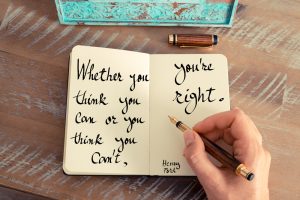 Whether you
think you
can or you
think you
Can't,
you're
right.
Henry
Ford